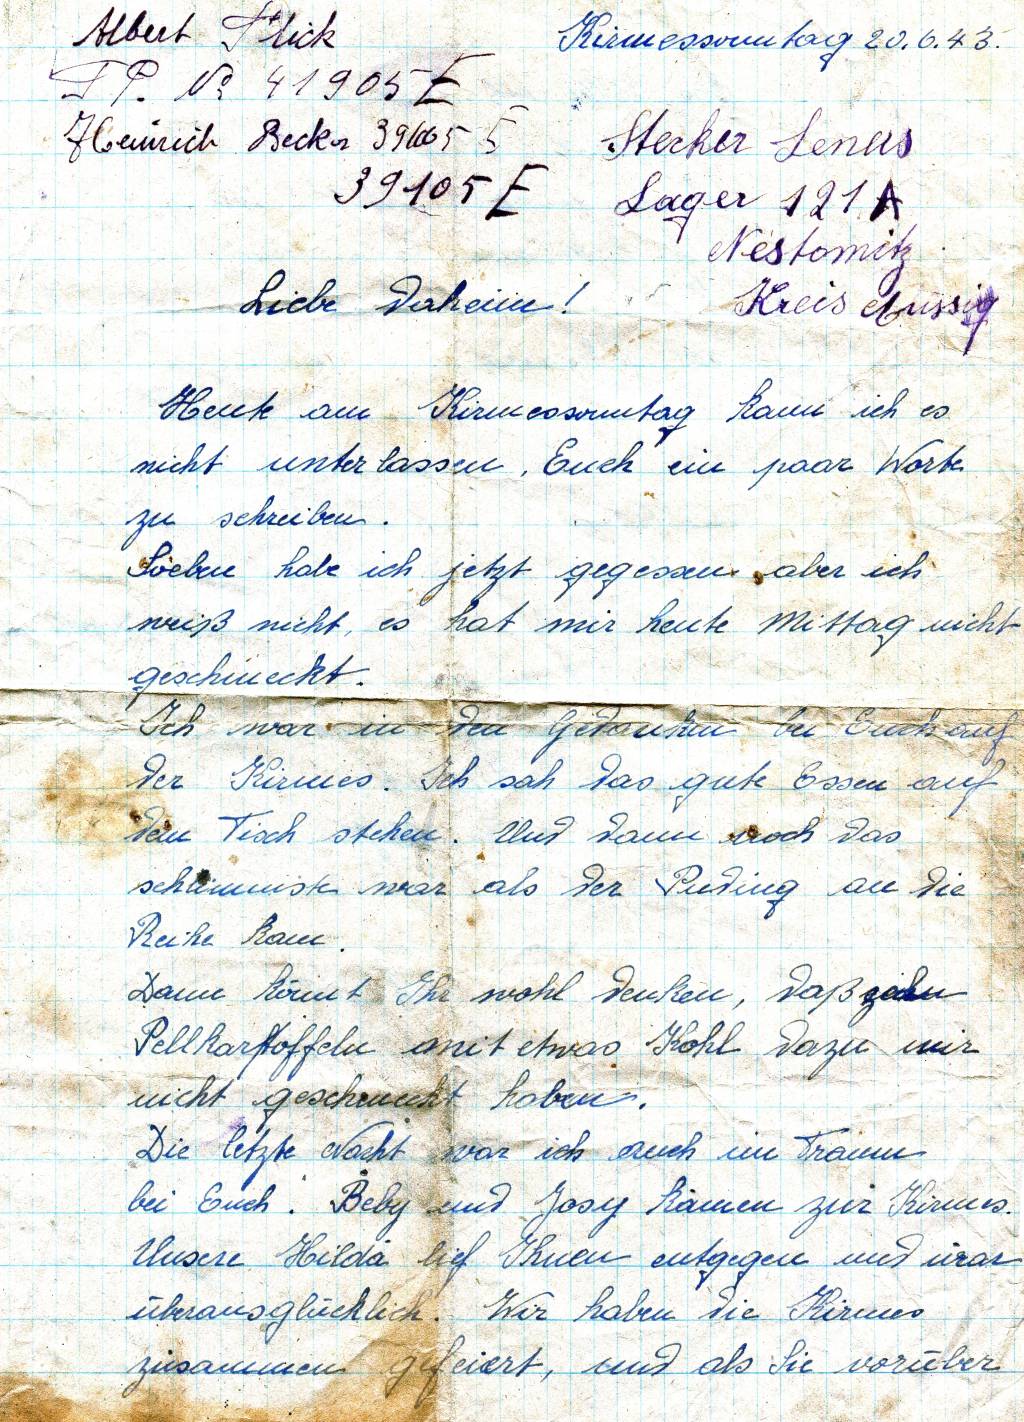 Albert Flick
Kirmessonntag 20.6.43.
F P. No 41905 E
Heinrich Becker 39105 E
39105 E
Stecker Lenus
Lager 121 A
Nestomitz
Kreis Aussig
Liebe Daheim!
Heute am Kirmessonntag kann ich es
nicht unterlassen, Euch ein paar Worte
zu schreiben.
Soeben habe ich jetzt gegessen aber ich
weiß nicht, es hat mir heute Mittag nicht
geschmeckt.
Ich war in den Gedanken bei Euch auf
der Kirmes. Ich sah das gute Essen auf
dem Tisch stehen. Und dann noch das
schlimmste war als der Puding an die
Reihe kam.
Dann könnt Ihr wohl denken, daß zehn
Pellkartoffeln mit etwas Kohl dazu mir
nicht geschmeckt haben.
Die letzte Nacht war ich auch im Traum
bei Euch. Beby und Josy kamen zur Kirmes.
Unsere Hilda lief Ihnen entgegen und war
überausglücklich. Wir haben die Kirmes
zusammen gefeiert, und als Sie vorüber